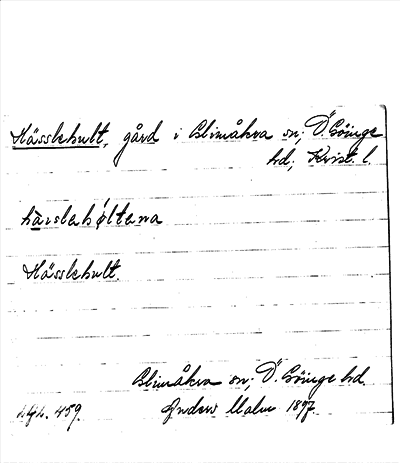 Hässlehult, gård i Glimåkra sn; Ö. Göinge
hd; Krist. l.
hässlahøltena
Hässlehult.
Glimåkra sn; Ö. Göinge hd.
Anders Malm 1897.
459.